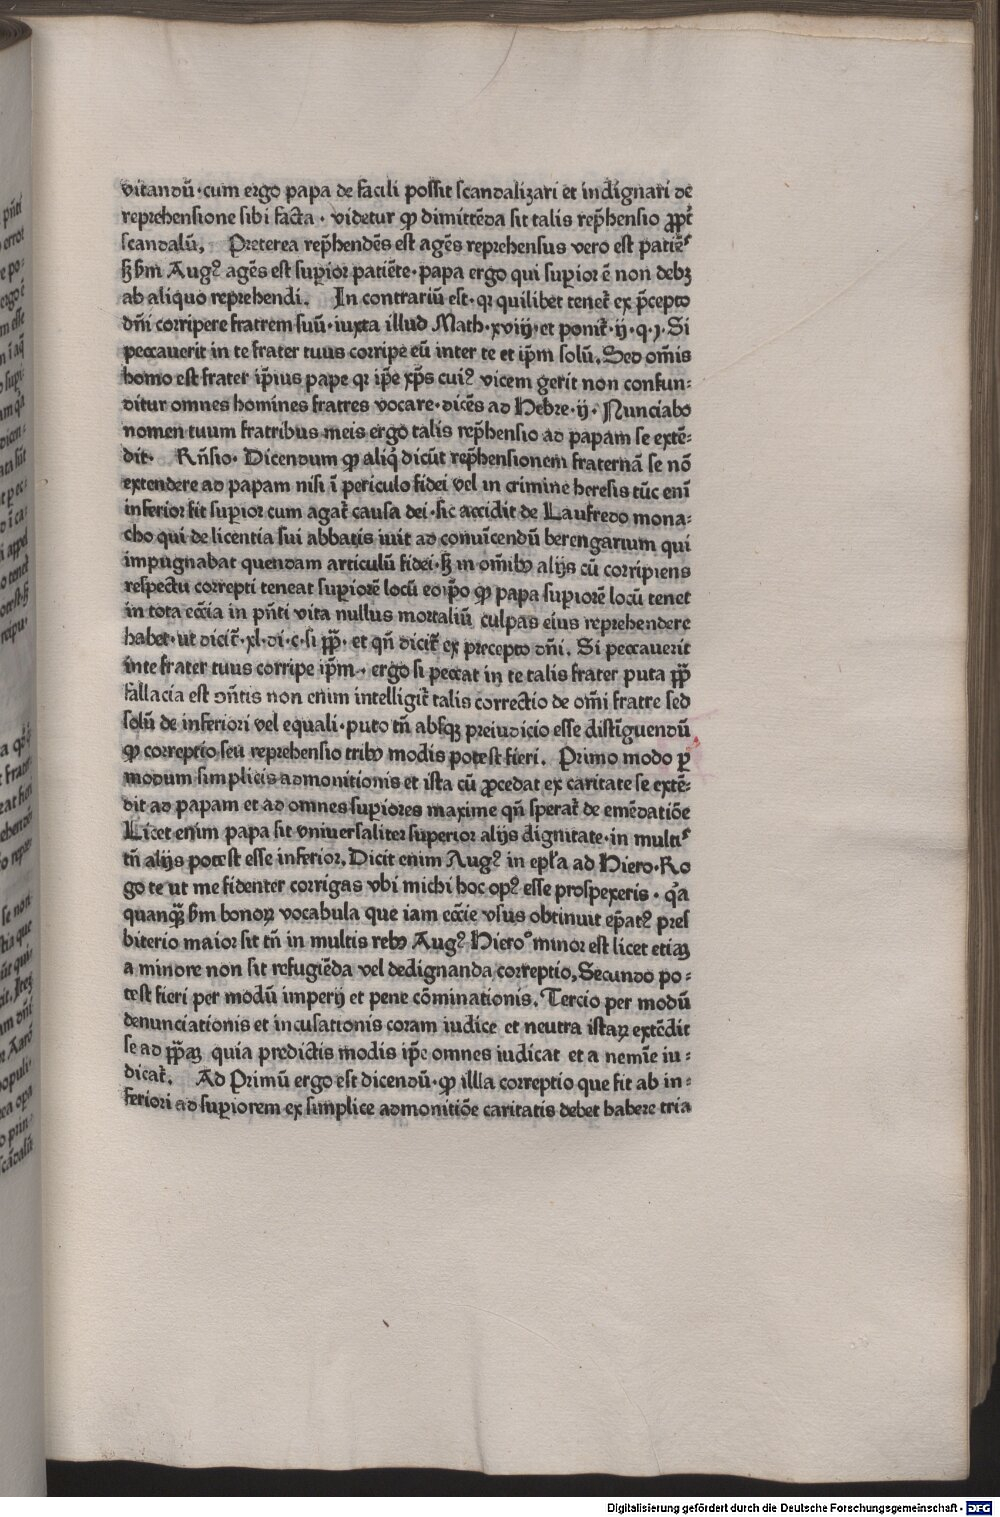 vitandū·cum ergo papa de facili possit scandalizari et indignari de
reprehensione sibi facta · videtur ꝙ dimittēda sit talis rep̄hensio ꝓpt̄
scandalū, Preterea rep̄hendēs est agēs reprehensus vero est patiēs
ẜm bm Augꝰ agēs est supior patiēte·papa ergo qui supior ē non debꝫ
ab aliquo reprehendi. In contrariū est·qr quilibet tenet̄ ex p̄cepto
dn̄i corripere fratrem suū·iuxta illud Math·xviij·et ponit̄·ij·q·j·Si
peccauerit in te frater tuus corripe eū inter te et ip̄m solū. Sed om̄is
homo est frater ip̄ius pape qr ip̄e xp̄s cuiꝰ vicem gerit non confun-
ditur omnes homines fratres vocare·dicēs ad Hebre·ij· Nunciabo
nomen tuum fratribus meis ergo talis rep̄hensio ad papam se extē-
dit· Rn̄sio· Dicendum ꝙ aliq̄ dicūt rep̄hensionem fraternā se nō
extendere ad papam nisi ī periculo fidei vel in crimine heresis tūc enī
inferior fit supior cum agat̄ causa dei·sic accidit de Laufredo mona-
cho qui de licentia sui abbatis iuit ad conuīcendū berengarium qui
impugnabat quendam articulū fidei·ẜ in om̄ibꝰ alijs cū corripiens
respectu correpti teneat supiorē locū eoip̄o ꝙ papa supiorē locū tenet
in tota ecc̄ia in pn̄ti vita nullus mortaliū culpas eius reprehendere
habet·ut dicit̄·xl·di·c·si pp̄·et qn̄ dicit̄ ex precepto dn̄i. Si peccauerit
inte frater tuus corripe ip̄m· ergo si peccat in te talis frater puta pp̄
fallacia est ↄn̄tis non enim intelligit̄ talis correctio de om̄i fratre sed
solū de inferiori vel equali·puto tn̄ absqꝫ preiudicio esse distīguendū
ꝙ correptio seu reprehensio tribꝰ modis potest fieri. Primo modo ꝑ
modum simplicis admonitionis et ista cū ꝓcedat ex caritate se extē-
dit ad papam et ad omnes supiores maxime qn̄ sperat̄ de emēdatiōe
Licet enim papa sit vniuersaliter superior alijs dignitate·in multis
tn̄ alijs potest esse inferior. Dicit enim Augꝰ in epl̄a ad Hiero·Ro
go te ut me fidenter corrigas vbi michi hoc opꝰ esse prospexeris · q̄a
quanꝗ̄ ẜm bonoꝝ vocabula que iam ecc̄ie vsus obtinuit ep̄atꝰ pres
biterio maior sit tn̄ in multis rebꝰ Augꝰ Hieroº minor est licet etiaꝫ
a minore non sit refugiēda vel dedignanda correptio, Secundo po-
test fieri per modū imperij et pene cōminationis. Tercio per modū
denunciationis et incusationis coram iudice et neutra istaꝝ extēdit
se ad pp̄aꝫ quia predictis modis ip̄e omnes iudicat et a nemīe iu-
dicat̄. Ad Primū ergo est dicendū·ꝙ illla correptio que fit ab in-
feriori ad supiorem ex simplice admonitiōe caritatis debet habere tria
Digitalisierung gefördert durch die Deutsche Forschungsgemeinschaft · DFG